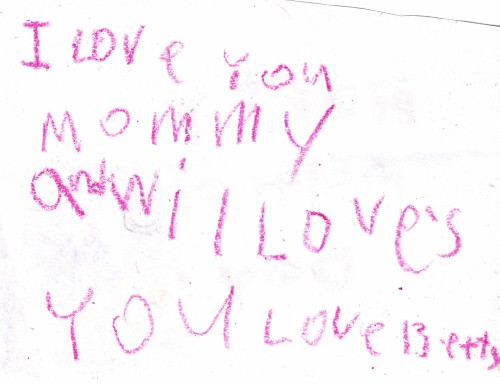 I LOVE YOU
MOMMY
and Will Loves
YOU LOVE Betty